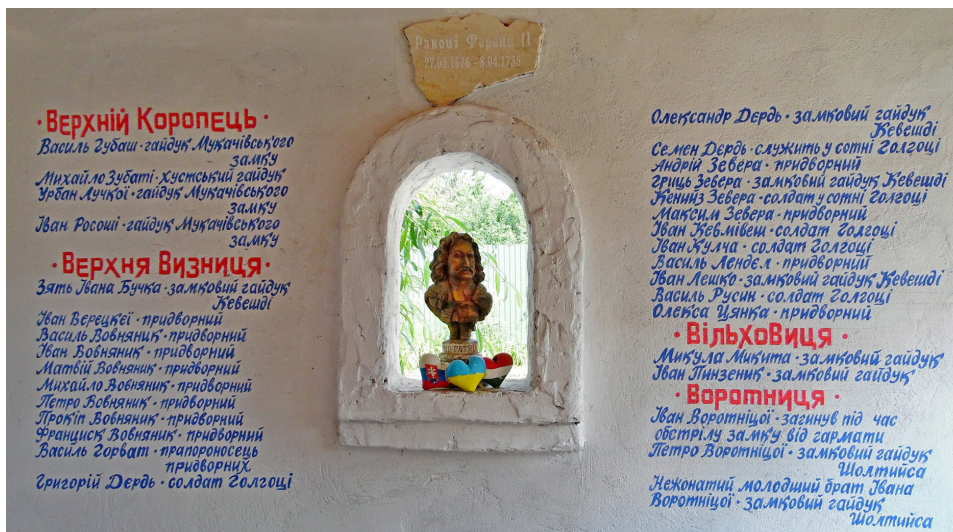 Ракоці Ференц II
27.03.1676 - 8.04.1735
· Верхній Коропець ·
Василь Губаш · гайдук Мукачівського
замку
Михайло Зубаті · хустський гайдук
Урбан Лучкої · гайдук Мукачівського
замку
Іван Росоші · гайдук Мукачівського
замку
· Верхня Визниця ·
Зять Івана Бучка · замковий гайдук
Кевешді
Іван Верецкеї · придворний
Василь Вовняник · придворний
Іван Вовняник · придворний
Матвій Вовняник · придворний
Михайло Вовняник · придворний
Петро Вовняник · придворний
Прокіп Вовняник · придворний
Франциск Вовняник · придворний
Василь Горват · прапороносець
придворних
Григорій Дєрдь · солдат Голгоці
Олександр Дєрдь · замковий гайдук
Кевешді
Семен Дєрдь · служить у сотні Голгоці
Андрій Зевера · придворний
Гриць Зевера · замковий гайдук Кевешді
Кениїз Зевера · солдат у сотні Голгоці
Максим Зевера · придворний
Іван Кевмівеш · солдат Голгоці
Іван Кулча · солдат Голгоці
Василь Лендєл · придворний
Іван Лешко · замковий гайдук Кевешді
Василь Русин · солдат Голгоці
Олекса Цянка · придворний
· Вільховиця ·
Микула Микита · замковий гайдук
Іван Пинзеник · замковий гайдук
· Воротниця ·
Іван Воротніцої · загинув під час
обстрілу замку від гармати
Петро Воротніцої · замковий гайдук
Шолтийса
Нежонатий молодший брат Івана
Воротніцої · замковий гайдук
Шолтийса